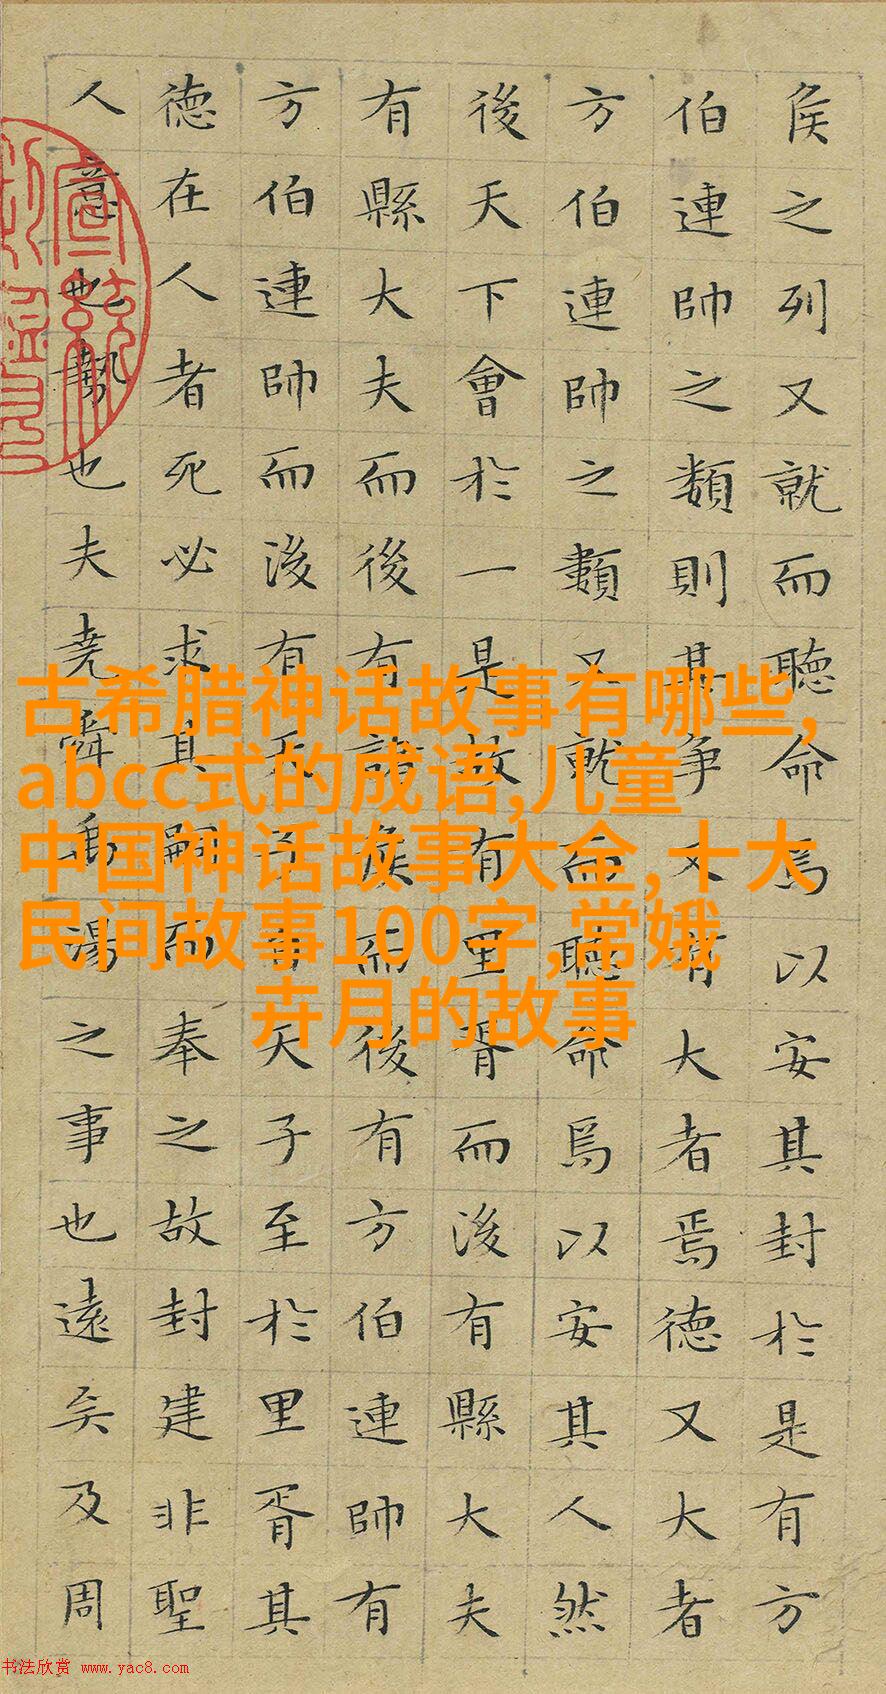 侯之列又就而聽命焉以安其封於是有方
伯連帥之類則其爭又有大者焉德又大者
方伯連帥之類又就而聽命焉以安其人然
後天下會於一是故有里胥而後有縣大夫
有縣大夫而後有諸侯而後有方伯連帥有
方伯連帥而後有天子自天子至於里胥其
德在人者死必求其嗣而奉之故封建非聖
人意也勢也夫堯舜禹湯之事也遠矣及周
古希腊神话故事有哪些,
abcc式的成语,儿童
中国神话故事大全,十大
民间故事100字,常娥
卉月的故事
书法欣赏 www.yac8.com